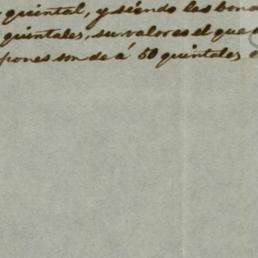 quintal, y siendo los bono
quintales, su valor es el que
pones son de á 50 quintales